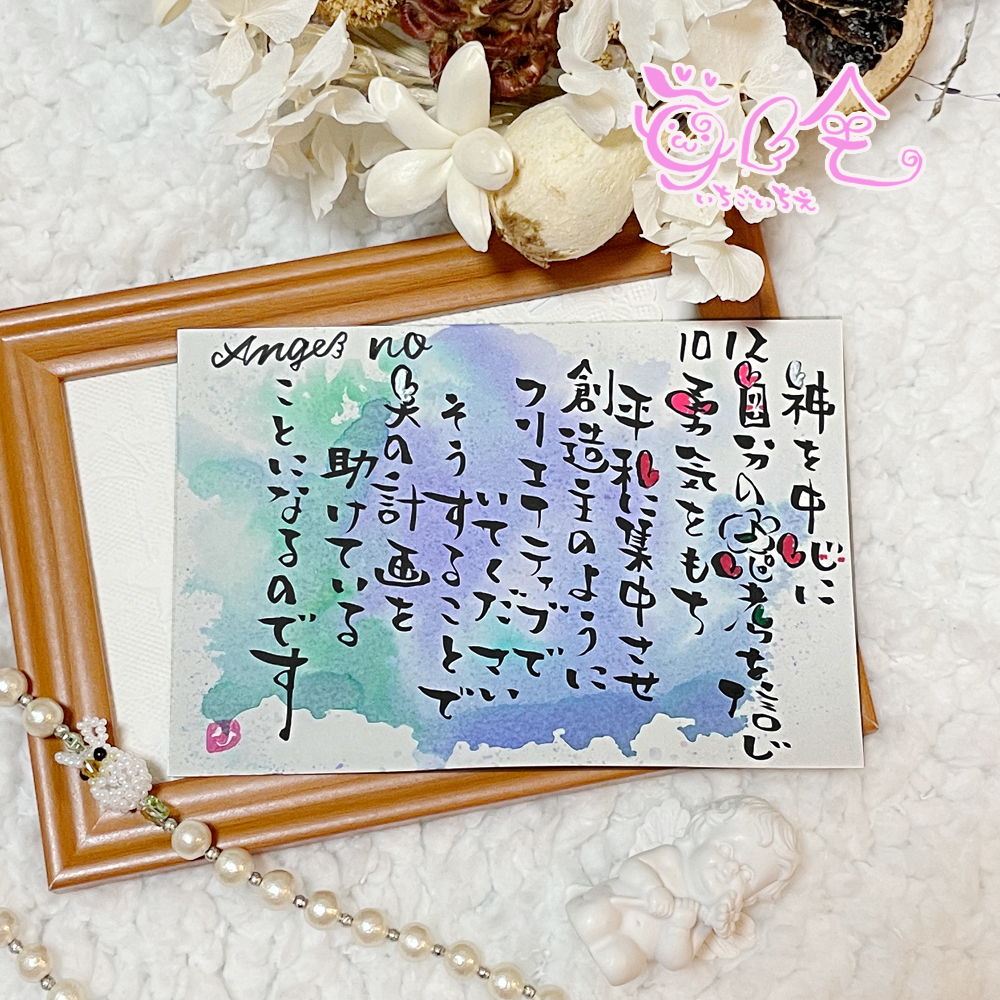 Angel no 1012
神を中心に
自分の思考を信じ
て
勇気をもち
平和に集中させ
創造主のように
クリエイティブで
いてください
そうすることで
天の計画を
助けている
ことになるのです
いちごいちえ